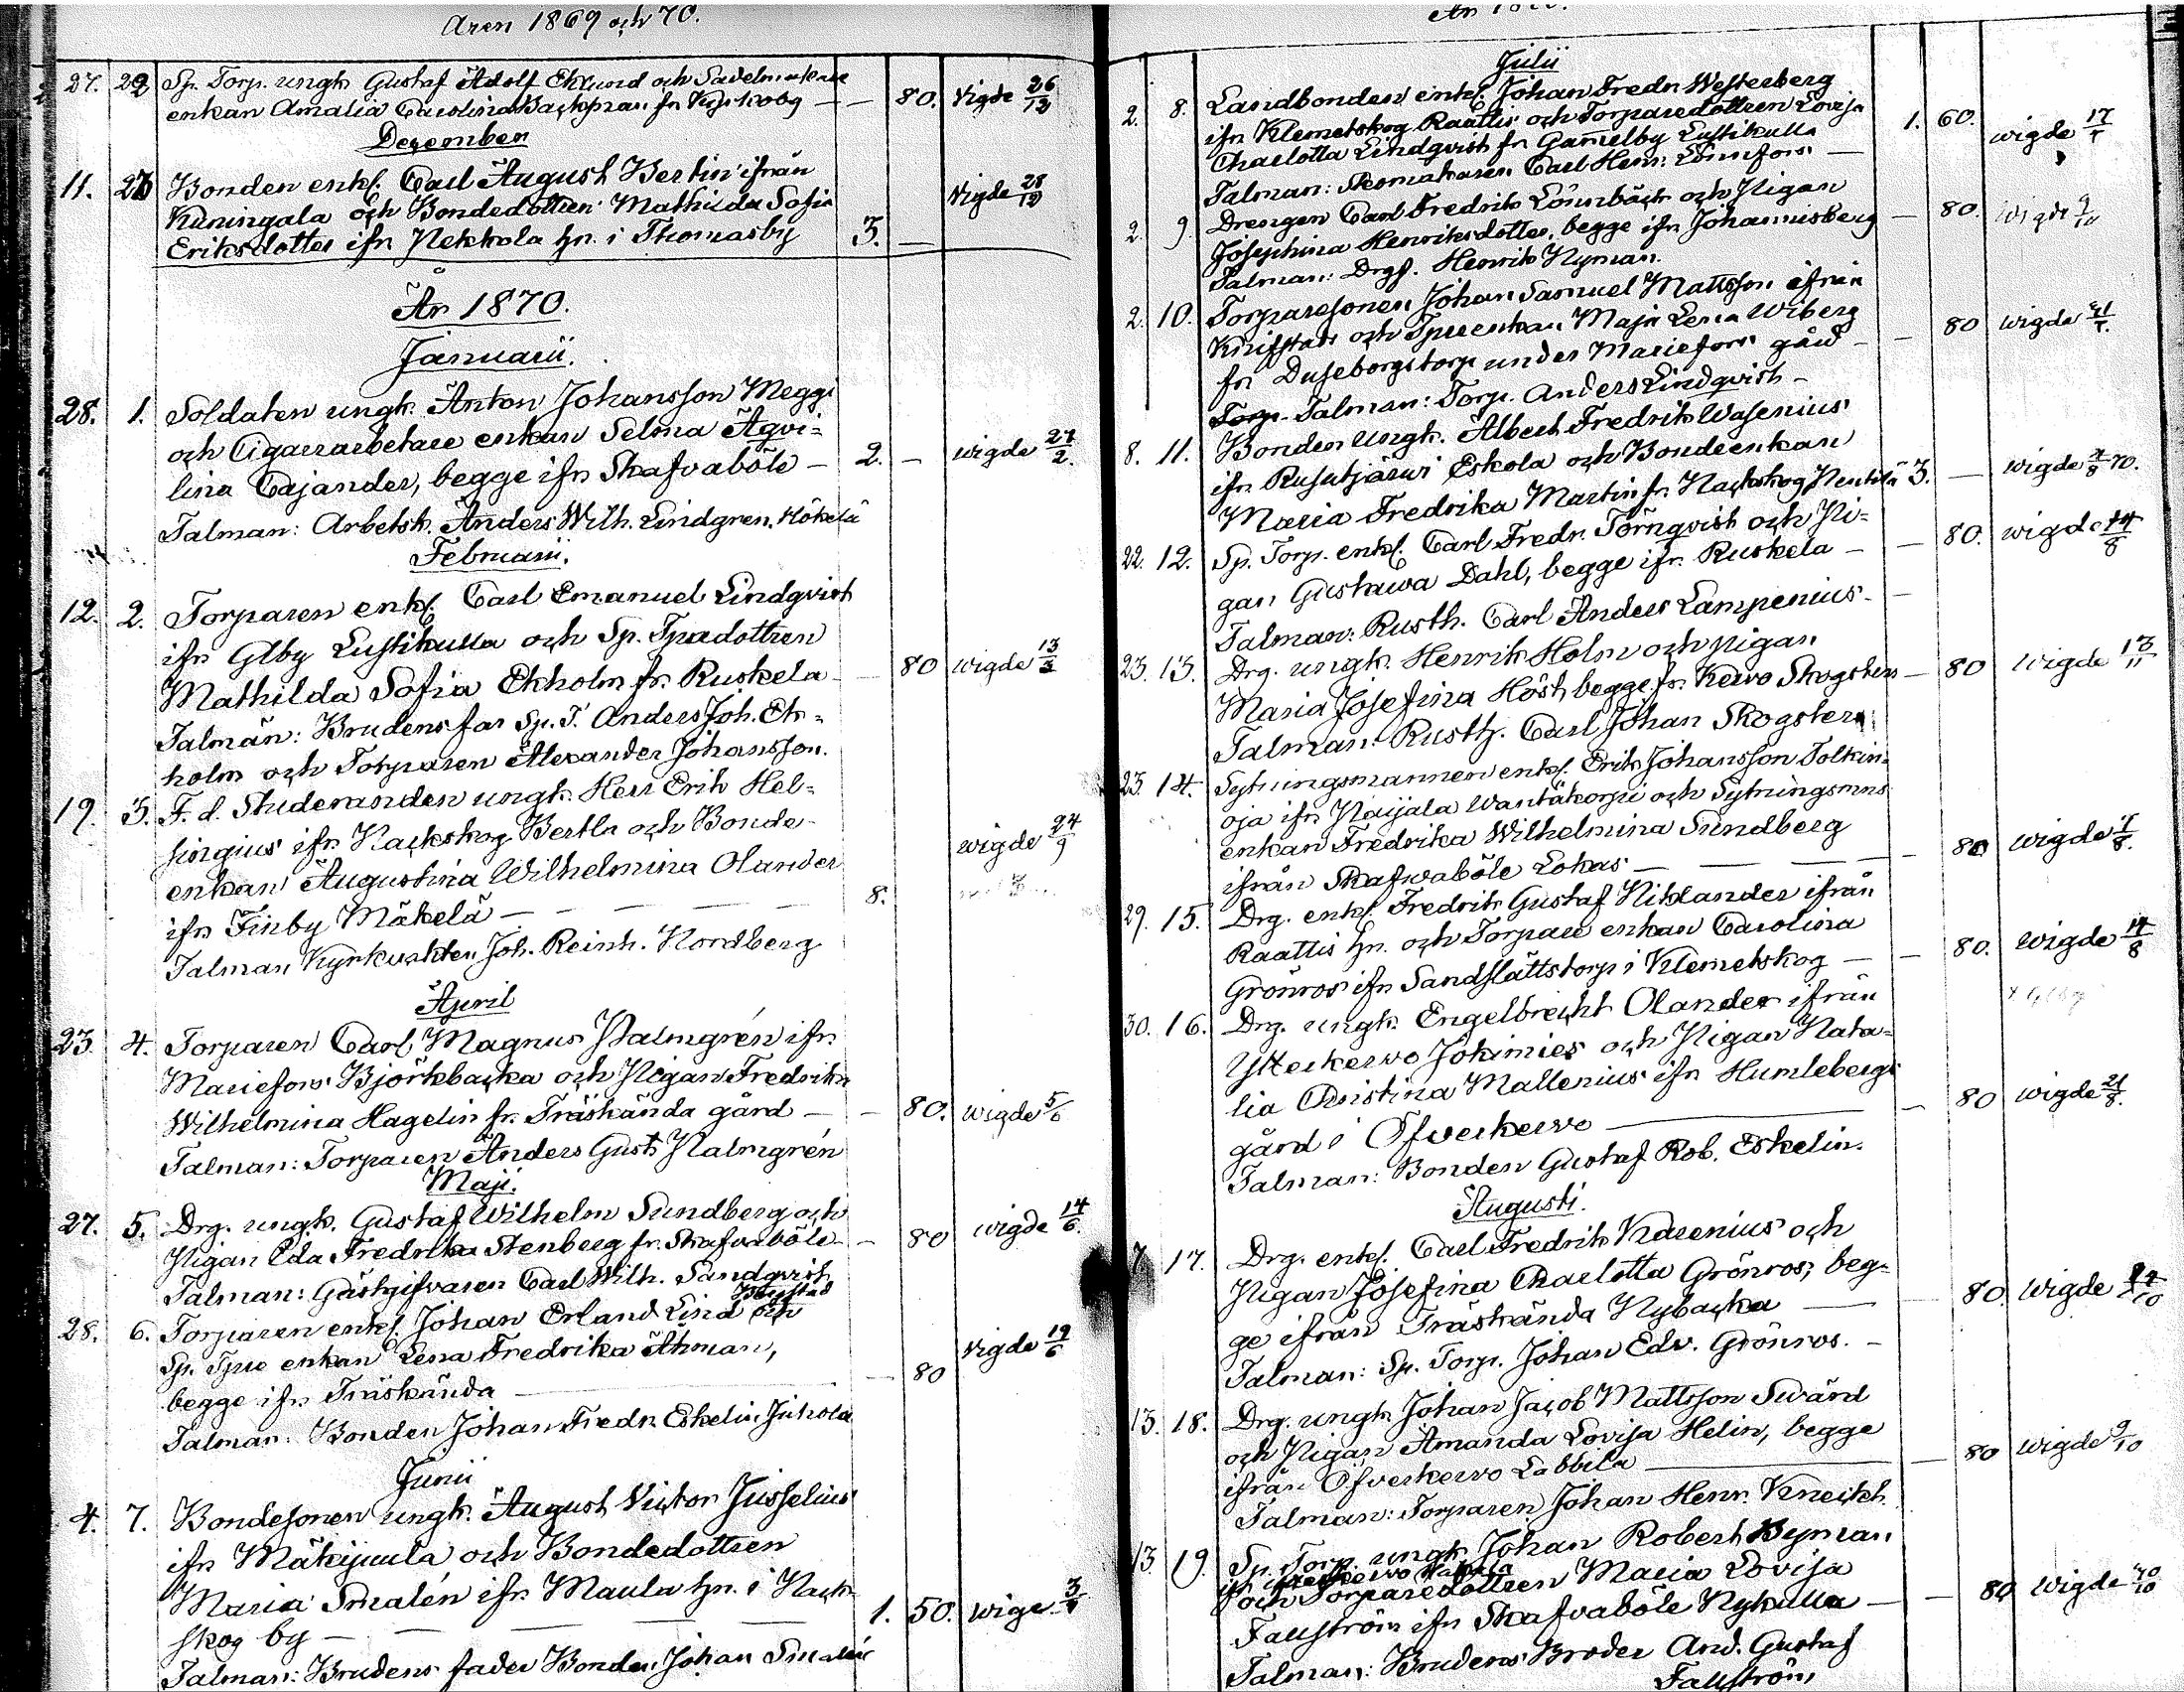 Åren 1869 och 70.
27. 22 Sp. Torp. ungk. Gustaf Adolf Eklund och Sadelmakare
enkan Amalia Carolina Backman fr. Kyrkoby — — 80. Vigde 26/12
Dezember
11. 23 Bonden enkl. Carl August Bertin ifrån
Kuningala och Bondedottren Mathilda Sofia
Eriksdotter ifn Pekkola hn. i Thomasby 3. — Vigde 28/12
År 1870.
Januarii.
28. 1. Soldaten ungk. Anton Johansson Meggi
och Cigarrarbetare enkan Selma Aqvi-
lina Cajander, begge ifn Skafvaböle — 2. — wigde 27/2.
Talman: Arbetsk. Anders Wilh. Lindgren, Hökelä
Februarii.
12. 2. Torparen enkl. Carl Emanuel Lindqvist
ifn Glby Lustikulla och Sp. Tpadottren
Mathilda Sofia Ekholm fr. Ruskela — 80 wigde 13/3
Talmän: Brudens far Sp. T. Anders Joh. Ek-
holm och Torparen Alexander Johansson.
19. 3. F. d. Studeranden ungk. Herr Erik Hel-
singius ifn Nackskog Bertla och Bonde-
enkan Augustina Wilhelmina Olander wigde 24/9
ifn Finby Mäkelä — — — — 8.
Talman Kyrkvakten Joh. Reinh. Nordberg
April
23. 4. Torparen Carl Magnus Palmgrén ifn
Mariefors Björkbacka och Pigan Fredrika
Wilhelmina Hagelin fr. Träskända gård — — 80. wigde 5/6
Talman: Torparen Anders Gust. Palmgrén
Maji.
27. 5. Drg. ungk. Gustaf Wilhelm Sundberg och
Pigan Eda Fredrika Stenberg fr. Skafvaböle — 80 wigde 14/6.
Talman: Gästgifvaren Carl Wilh. Sandqvist
28. 6. Torparen enkl. Johan Erland Lind och
Sp. Tpre enkan Lena Fredrika Åhman,
begge ifn Träskända — — 80 Vigde 19/6
Talman: Bonden Johan Fredr. Eskelin, Juhola
Junii
4. 7. Bondesonen ungk. August Victor Jusselius
ifn Mäkijuula och Bondedottren
Maria Smalén ifn Maula hn. i Nack-
skog by — — — — 1. 50. wige 3/7
Talman: Brudens fader Bonden Johan Smalén
År
Julii
2. 8. Landbonden enkl. Johan Fredr. Westerberg
ifn Klemetskog Raattis och Torparedottren Lovisa
Charlotta Lindqvist fr. Gamelby Lustikulla 1. 60. wigde 17/7
Talman: Skomakaren Carl Henr. Lönnfors —
2. 9. Drengen Carl Fredrik Lönnbäck och Pigan
Josephina Henriksdotter, begge ifn Johannisberg — 80. wigde 9/10
Talman: Drgf. Henrik Nyman.
2. 10. Torparesonen Johan Samuel Mattsson ifrån
och Tpreenkan Maja Lena Wiberg
fr. Duseborgstorp under Mariefors gård — — 80 wigde 31/7.
Torp. Talman: Torp. Anders Lindqvist —
8. 11. Bonden Ungk. Albert Fredrik Wasenius
ifn Rusutjärwi Eskola och Bondeenkan
Maria Fredrika Martin fr. Nackskog Pentilä 3. — wigde 7/8 70.
22. 12. Sp. Torp. enkl. Carl Fredr. Törnqvist och Pi-
gan Gustawa Dahl, begge ifr. Ruskela — — 80. wigde 14/8
Talman: Rusth. Carl Anders Lampenius —
23. 13. Drg. ungk. Henrik Holm och Pigan
Maria Josefina Höst, begge fr. Kervo Skogster — 80 wigde 13/11
Talman: Rusth. Carl Johan Skogster.
23. 14. Sytningsmannen enkl. Erik Johansson Tolkin-
oja ifn Paijala Wantäkorpi och Sytningsmns
enkan Fredrika Wilhelmina Sundberg
ifrån Skafwaböle Lokas — — — 80 wigde 7/8.
29. 15. Drg. enkl. Fredrik Gustaf Niklander ifrån
Raattis hn. och Torpare enkan Carolina
Grönros ifn Sandslättstorp i Klemetskog — — 80. wigde 14/8
30. 16. Drg. ungk. Engelbrecht Olander ifrån
Ytterkerwo Jokimies och Pigan Nata-
lia Christina Mallenius ifn Humlebergs
gård i Öfwerkerwo — — 80 wigde 21/8.
Talman: Bonden Gustaf Rob. Eskelin.
Augusti.
7 17. Drg. enkl. Carl Fredrik Karenius och
Pigan Josefina Charlotta Grönros, beg-
ge ifrån Träskända Nybacka — — 80. wigde
Talman: Sp. Torp. Johan Edv. Grönros. —
13. 18. Drg. ungk Johan Jacob Mattsson Swärd
och Pigan Amanda Lovisa Helin, begge
ifrån Öfverkerwo Labbila — — 80 wigde 9/10
Talman: Torparen Johan Henr. Kneckt
13. 19. Sp. Torp. ungk. Johan Robert Byman
och Torparedottren Maria Lovisa
Fallström ifn Skafvaböle Nykulla — — 80 wigde
Talman: Brudens Broder And. Gustaf
Fallström